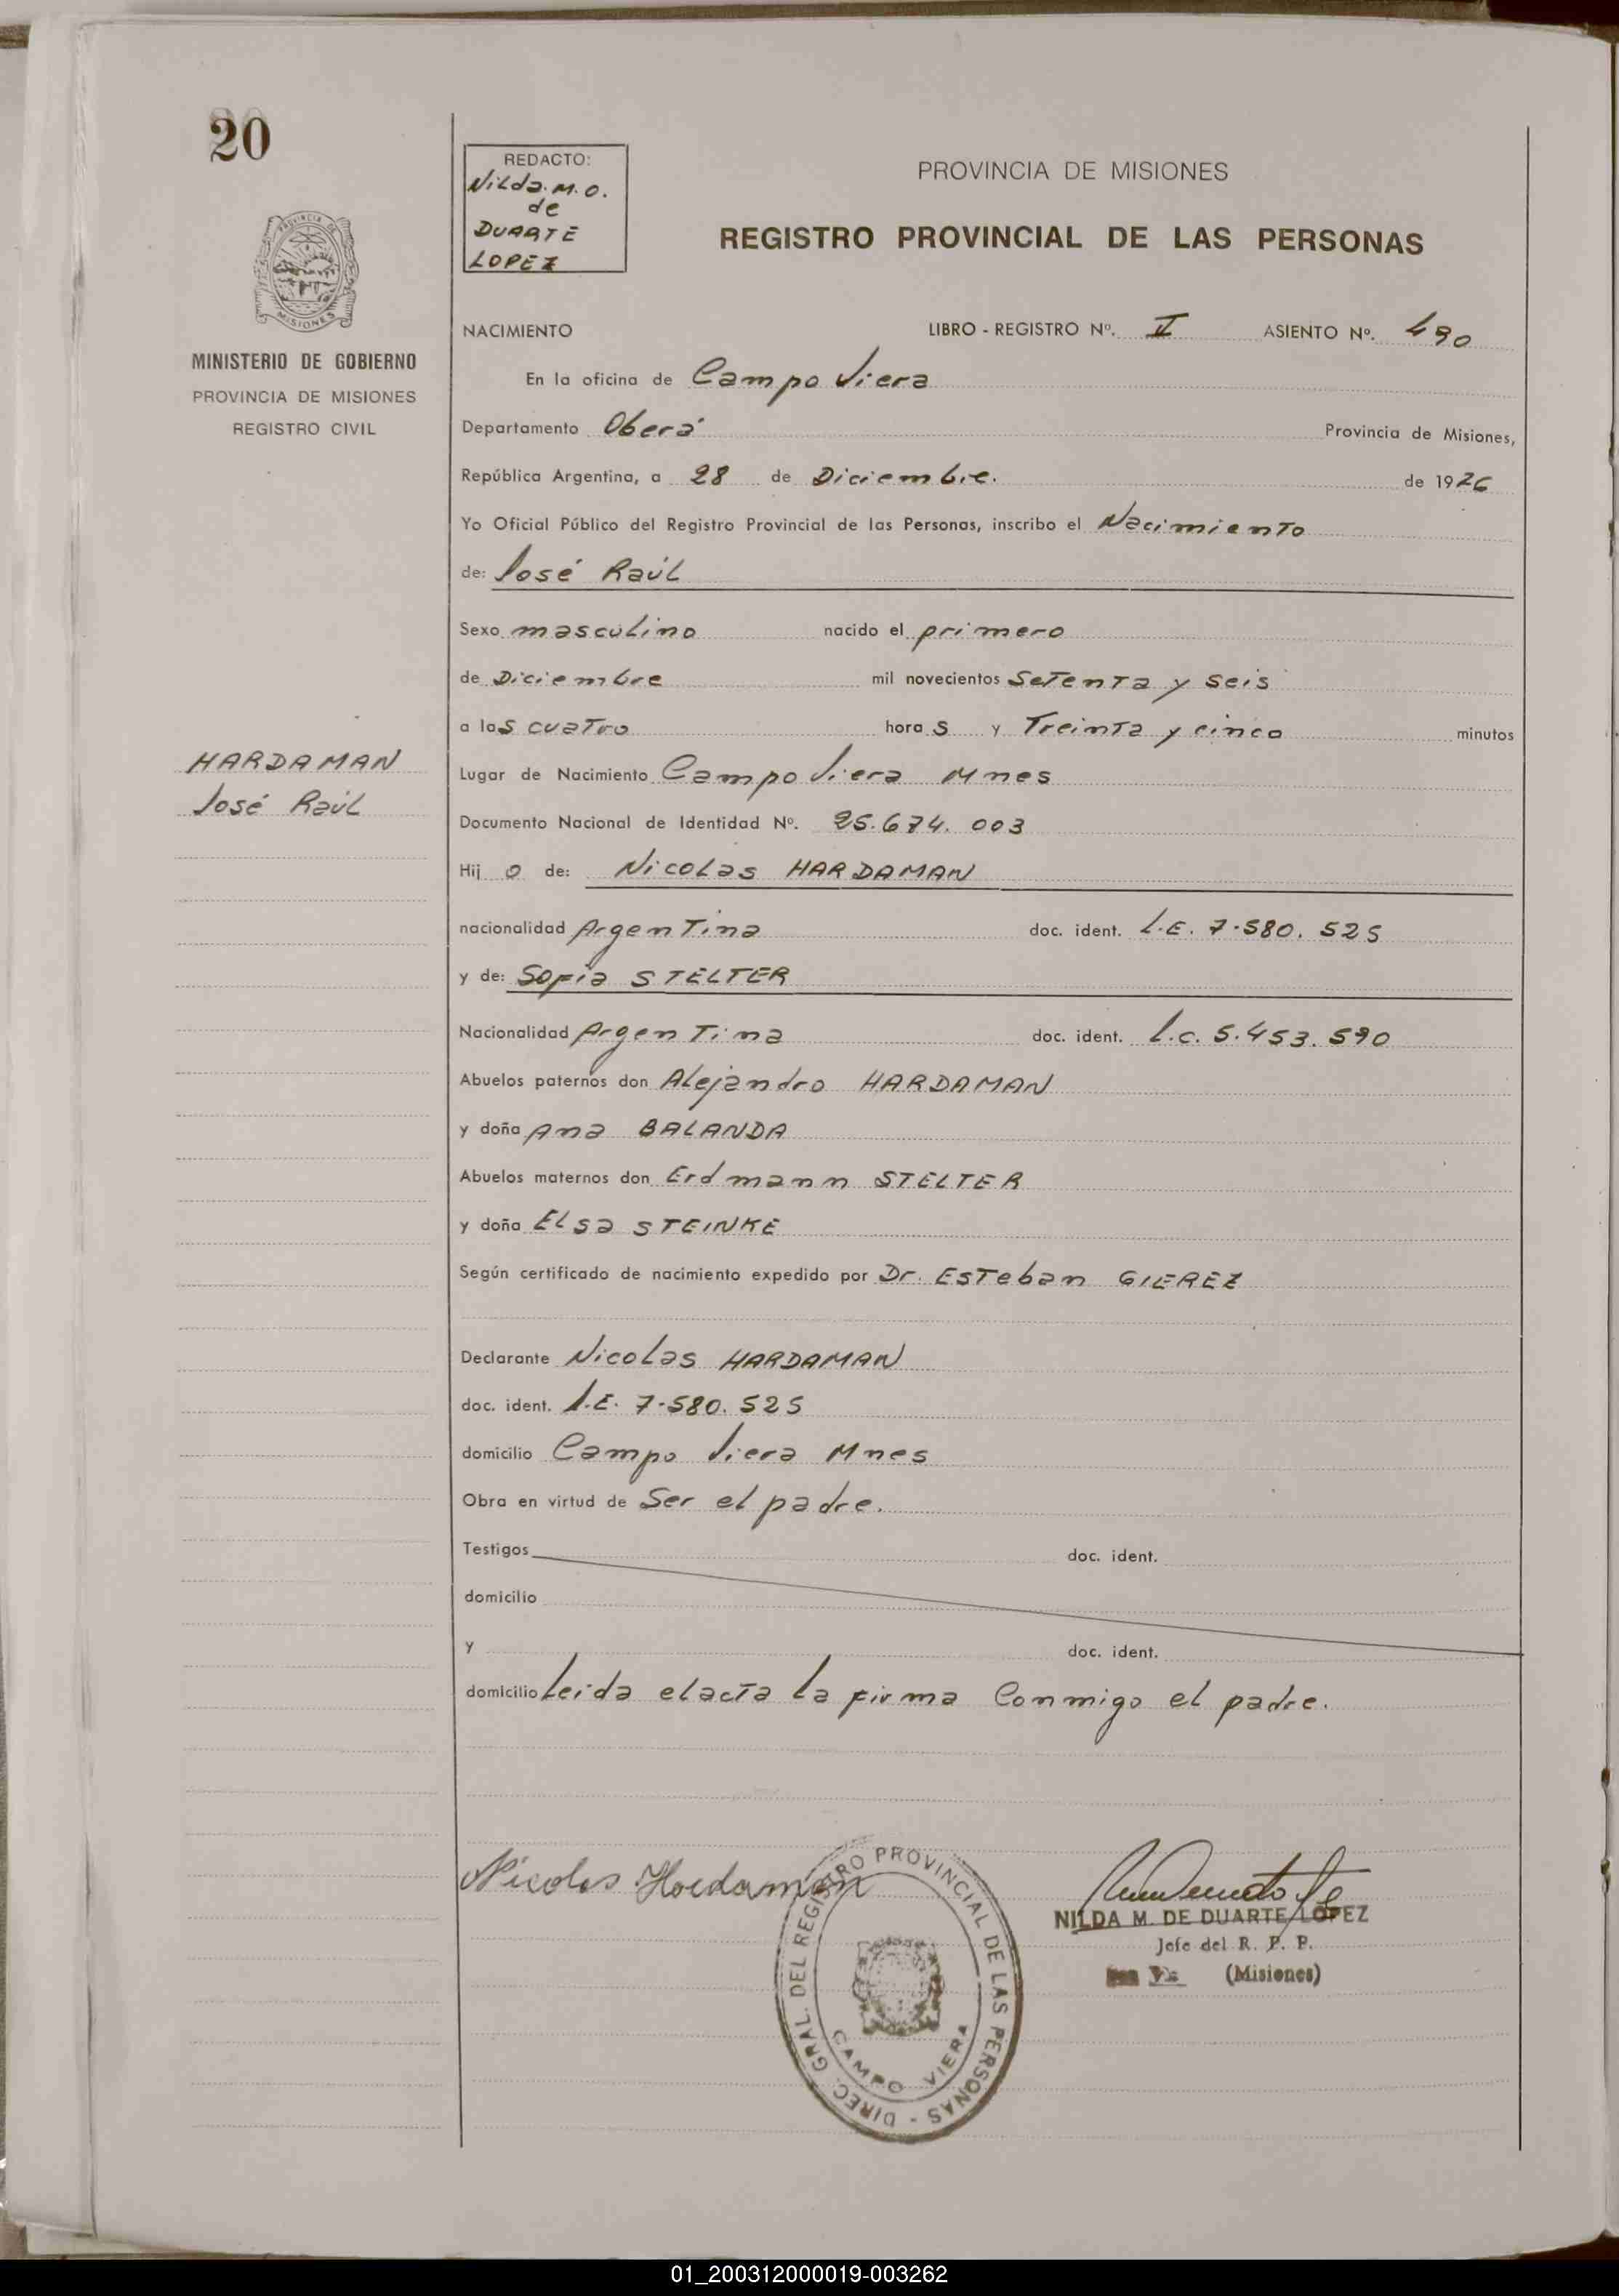 20
REDACTO:
Nilda. M. O.
de
DUARTE
LOPEZ
PROVINCIA DE MISIONES
REGISTRO PROVINCIAL DE LAS PERSONAS
PROVINCIA DE
MISIONES
MINISTERIO DE GOBIERNO
PROVINCIA DE MISIONES
REGISTRO CIVIL
NACIMIENTO LIBRO - REGISTRO Nº. II ASIENTO Nº. 490
En la oficina de Campo Viera
Departamento Oberá Provincia de Misiones,
República Argentina, a 28 de Diciembre. de 1976
Yo Oficial Público del Registro Provincial de las Personas, inscribo el Nacimiento
de: José Raúl
Sexo masculino nacido el primero
de Diciembre mil novecientos setenta y seis
a las cuatro horas y Treinta y cinco minutos
HARDAMAN
José Raúl
Lugar de Nacimiento Campo Viera Mnes
Documento Nacional de Identidad Nº. 25.674.003
Hijo de: Nicolas HARDAMAN
nacionalidad Argentina doc. ident. L.E. 7.580.525
y de: Sofia STELTER
Nacionalidad Argentina doc. ident. L.C. 5.453.590
Abuelos paternos don Alejandro HARDAMAN
y doña Ana BALANDA
Abuelos maternos don Erdmann STELTER
y doña Elsa STEINKE
Según certificado de nacimiento expedido por Dr. Esteban GIEREZ
Declarante Nicolas HARDAMAN
doc. ident. L.E. 7.580.525
domicilio Campo Viera Mnes
Obra en virtud de Ser el padre.
Testigos doc. ident.
domicilio
y doc. ident.
domicilio Leida el acta la firma Conmigo el padre.
Nicolas Hardaman
DIREC. GRAL. DEL REGISTRO PROVINCIAL DE LAS PERSONAS -
CAMPO VIERA
NILDA M. DE DUARTE LOPEZ
Jefe del R. P. P.
(Misiones)
01_200312000019-003262